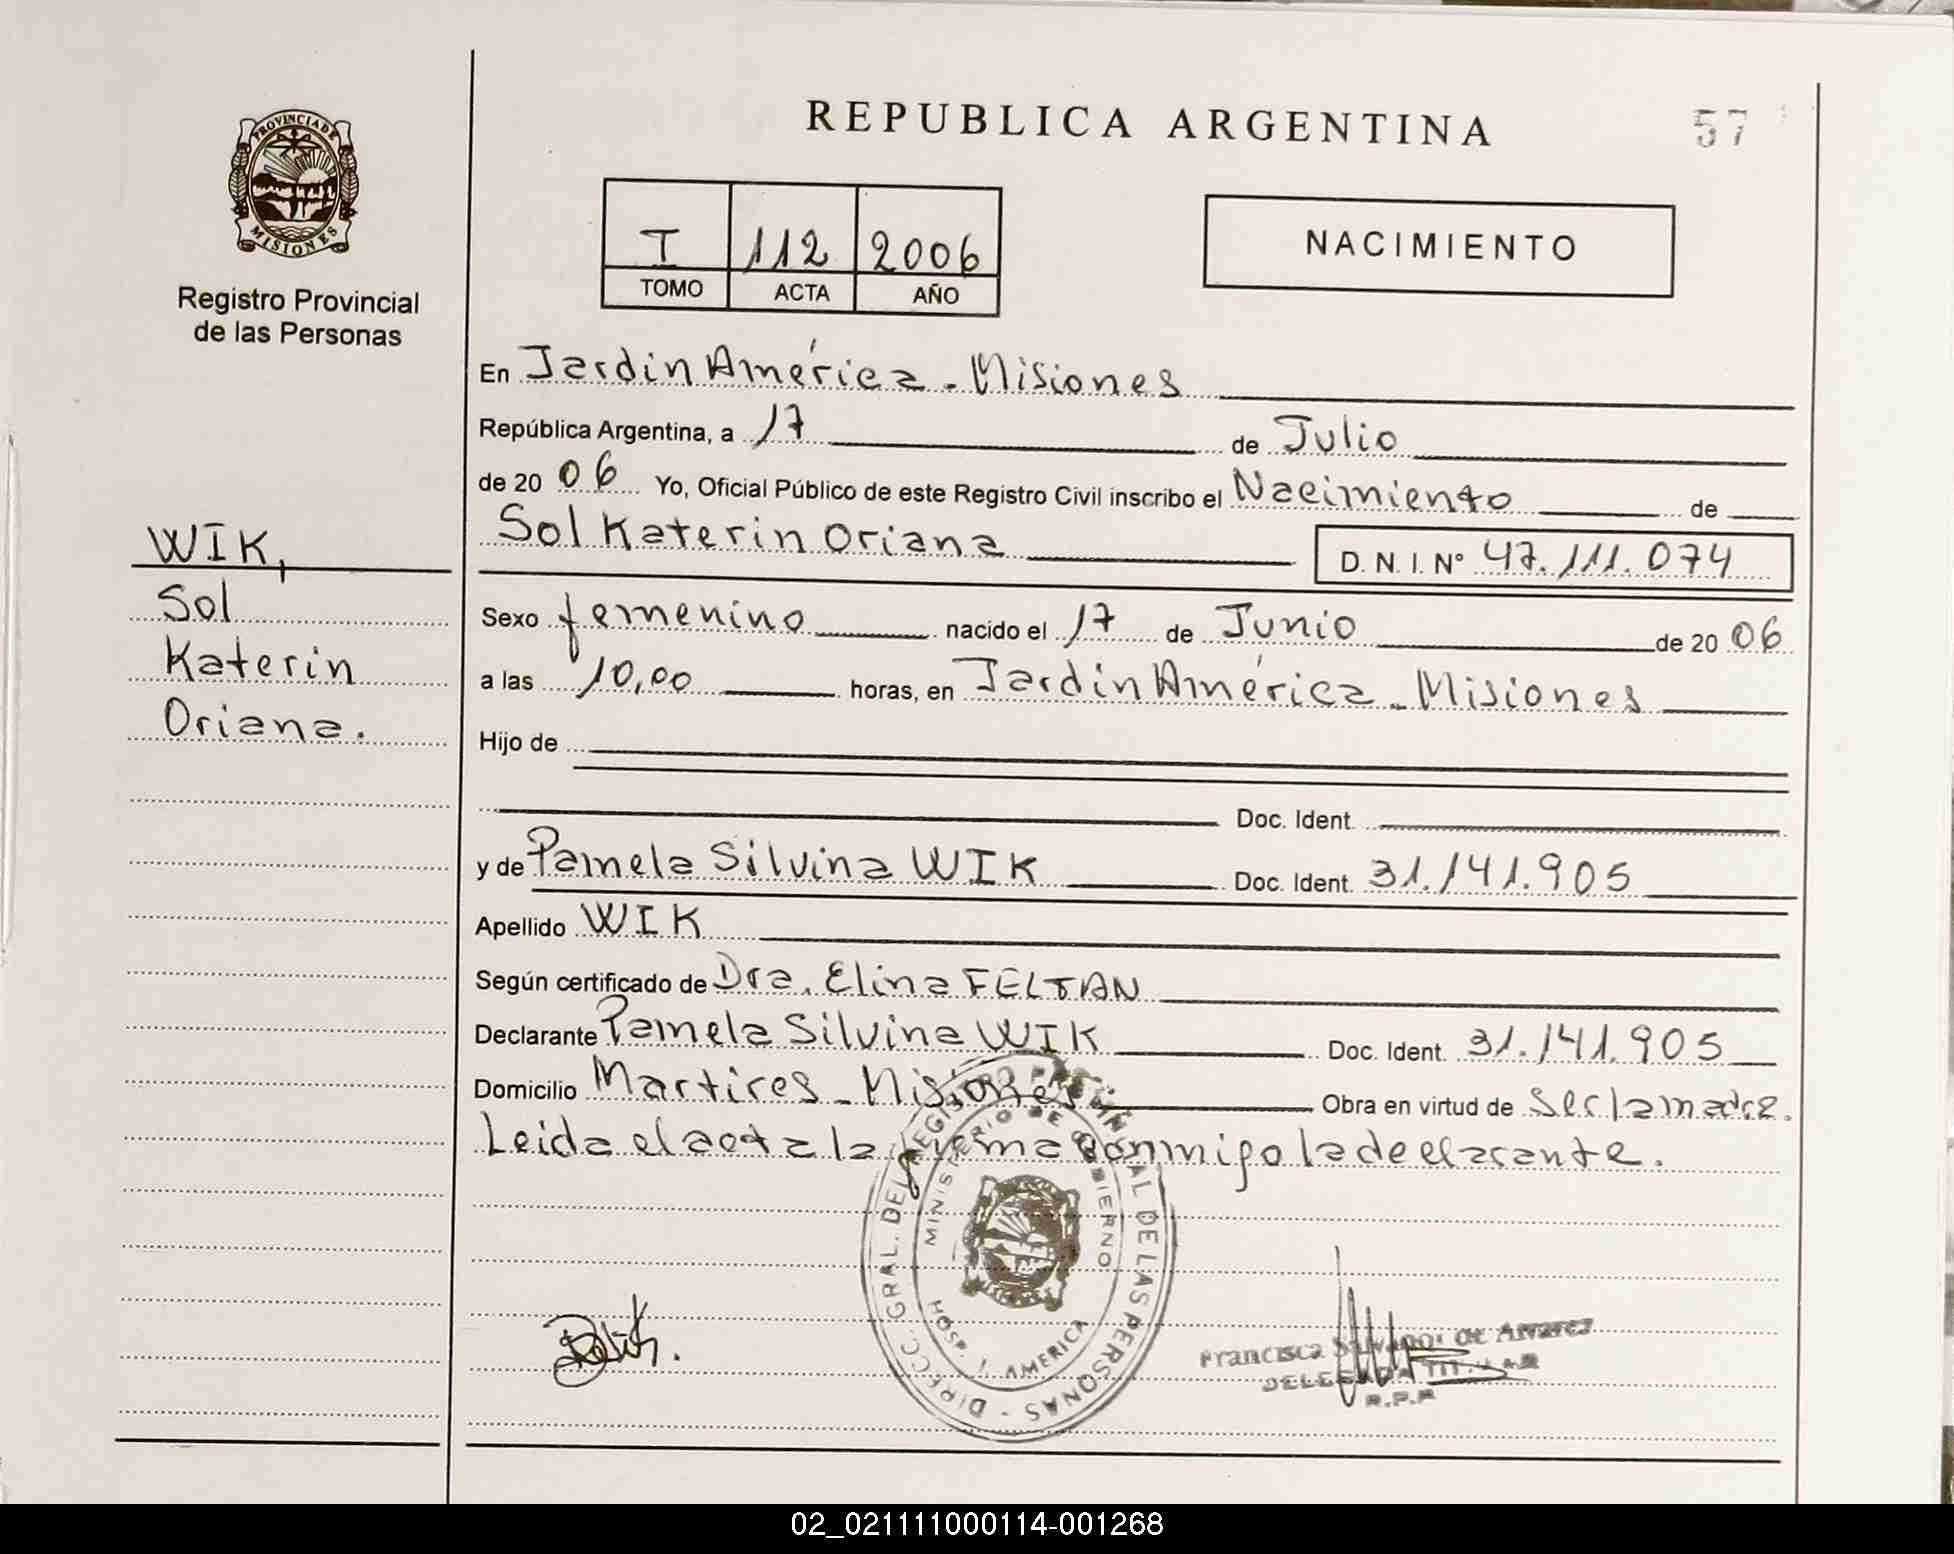 REPUBLICA ARGENTINA
57
PROVINCIA DE MISIONES
Registro Provincial
de las Personas
I 112 2006
TOMO ACTA AÑO
NACIMIENTO
WIK,
Sol
Katerin
Oriana.
En Jardin América - Misiones
República Argentina, a 17 de Julio
de 20 06 Yo, Oficial Público de este Registro Civil inscribo el Nacimiento de
Sol Katerin Oriana D. N. I. Nº 47.111.074
Sexo femenino nacido el 17 de Junio de 20 06
a las 10,00 horas, en Jardin América - Misiones
Hijo de
Doc. Ident.
y de Pamela Silvina WIK Doc. Ident. 31.141.905
Apellido WIK
Según certificado de Dra. Elina FELTAN
Declarante Pamela Silvina WIK Doc. Ident. 31.141.905
Domicilio Martires - Misiones Obra en virtud de Ser la madre.
Leida el acta la firma conmigo la declarante.
DIRECC. GRAL. DEL REGISTRO PROVINCIAL DE LAS PERSONAS -
MINISTERIO DE GOBIERNO
HOSP. J. AMERICA
Francisca de Alvarez
DELEGADA TITULAR
R.P.P
02_021111000114-001268